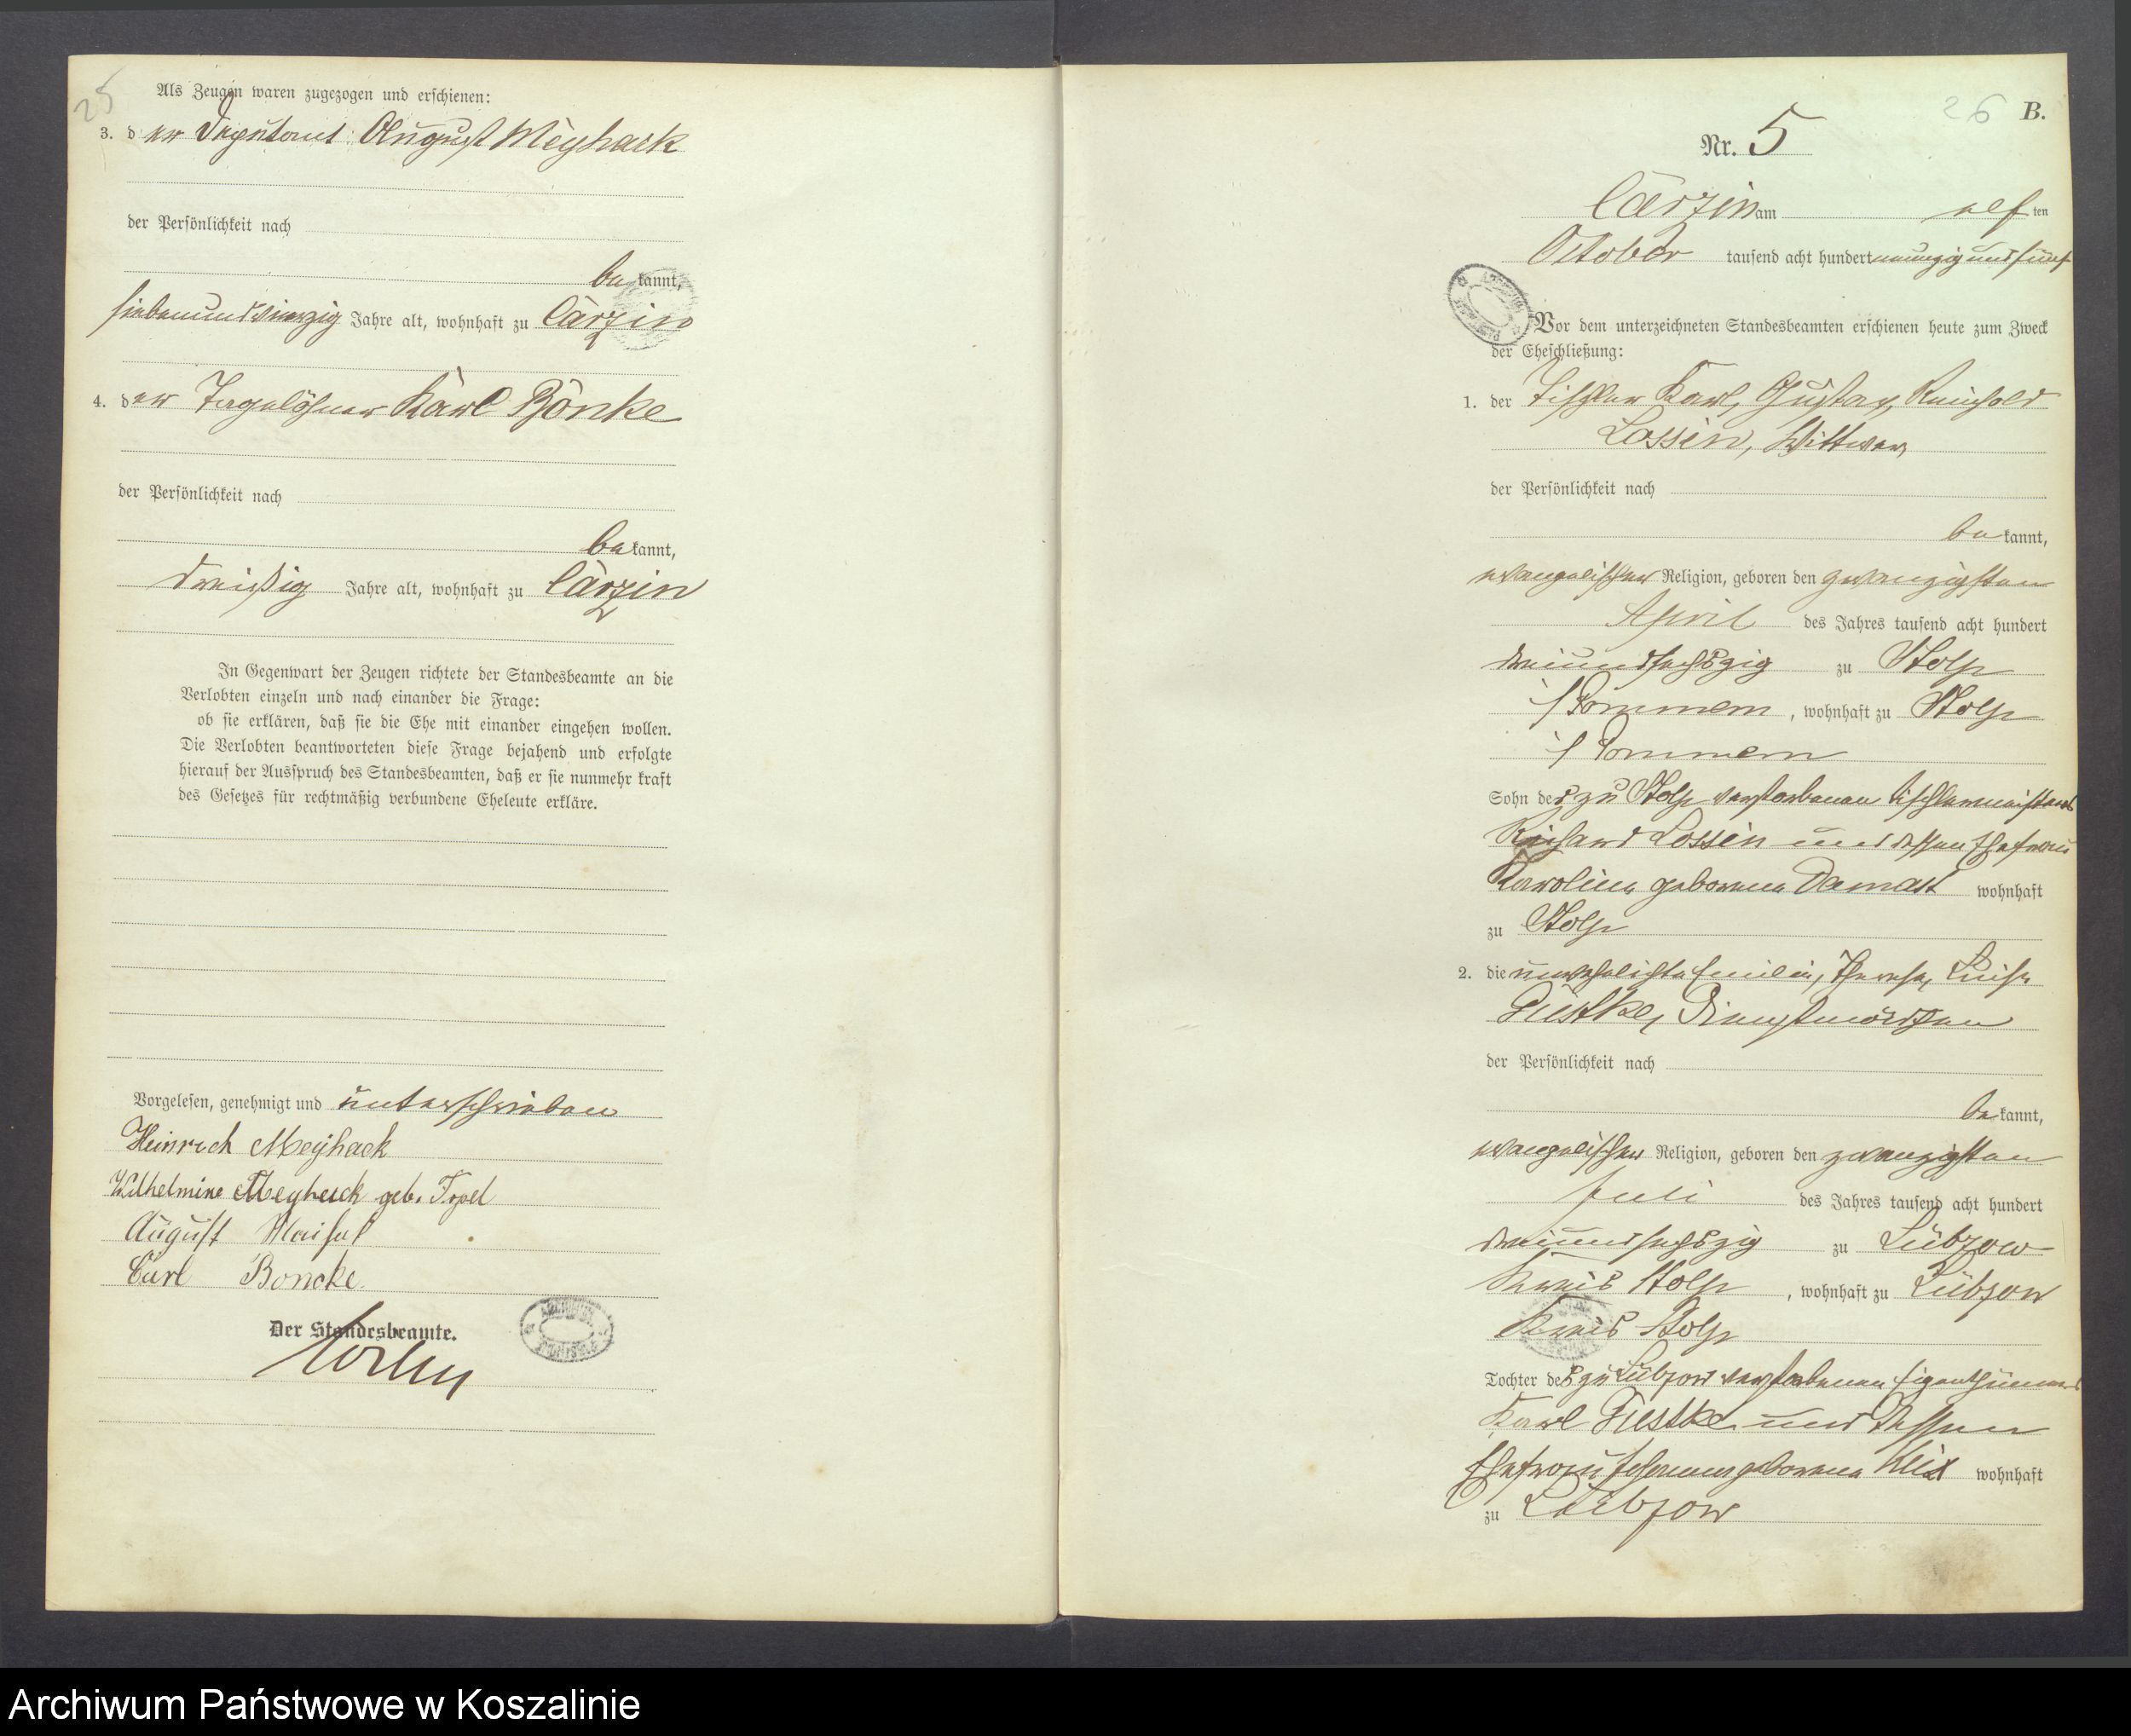 25
Als Zeugen waren zugezogen und erschienen:
3. der Deputant August Meyhack
der Persönlichkeit nach
bekannt,
siebenundvierzig Jahre alt, wohnhaft zu Carzin
4. der Tagelöhner Karl Bönke
der Persönlichkeit nach
bekannt,
dreißig Jahre alt, wohnhaft zu Carzin
In Gegenwart der Zeugen richtete der Standesbeamte an die
Verlobten einzeln und nach einander die Frage:
ob sie erklären, daß sie die Ehe mit einander eingehen wollen.
Die Verlobten beantworteten diese Frage bejahend und erfolgte
hierauf der Ausspruch des Standesbeamten, daß er sie nunmehr kraft
des Gesetzes für rechtmäßig verbundene Eheleute erkläre.
Vorgelesen, genehmigt und unterschrieben
Heinrich Meyhack
Wilhelmine Meyhack geb.
August
Carl Boncke
Der Standesbeamte.
26 B.
Nr. 5
Carzin am elften
October tausend acht hundert neunzig und fünf
Vor dem unterzeichneten Standesbeamten erschienen heute zum Zweck
der Eheschließung:
1. der Tischler Karl, Gustav, Reinhold
Lossin, Wittwer,
der Persönlichkeit nach
bekannt,
evangelischer Religion, geboren den zwanzigsten
April des Jahres tausend acht hundert
dreiundsechszig zu Stolp
i/Pommern, wohnhaft zu Stolp
i/Pommern
Sohn des zu Stolp verstorbenen Tischlermeisters
Richard Lossin und dessen Ehefrau
Karoline geborene Damast wohnhaft
zu Stolp
2. die unverehelichte Emilie, Therese, Luise
Giestke, Dienstmädchen
der Persönlichkeit nach
bekannt,
evangelischer Religion, geboren den zwanzigsten
Juli des Jahres tausend acht hundert
dreiundsechszig zu Lübzow
Kreis Stolp, wohnhaft zu Lübzow
Kreis Stolp
Tochter des zu Lübzow verstorbenen Eigenthümers
Karl Giestke und dessen
Ehefrau geborene wohnhaft
zu Lübzow
Archiwum Państwowe w Koszalinie